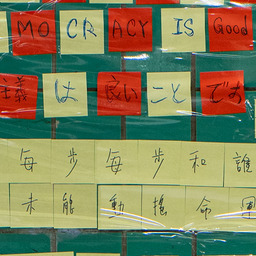 MOCRACY IS Good
主義は良いことです
每步每步和誰
未能動搖命運